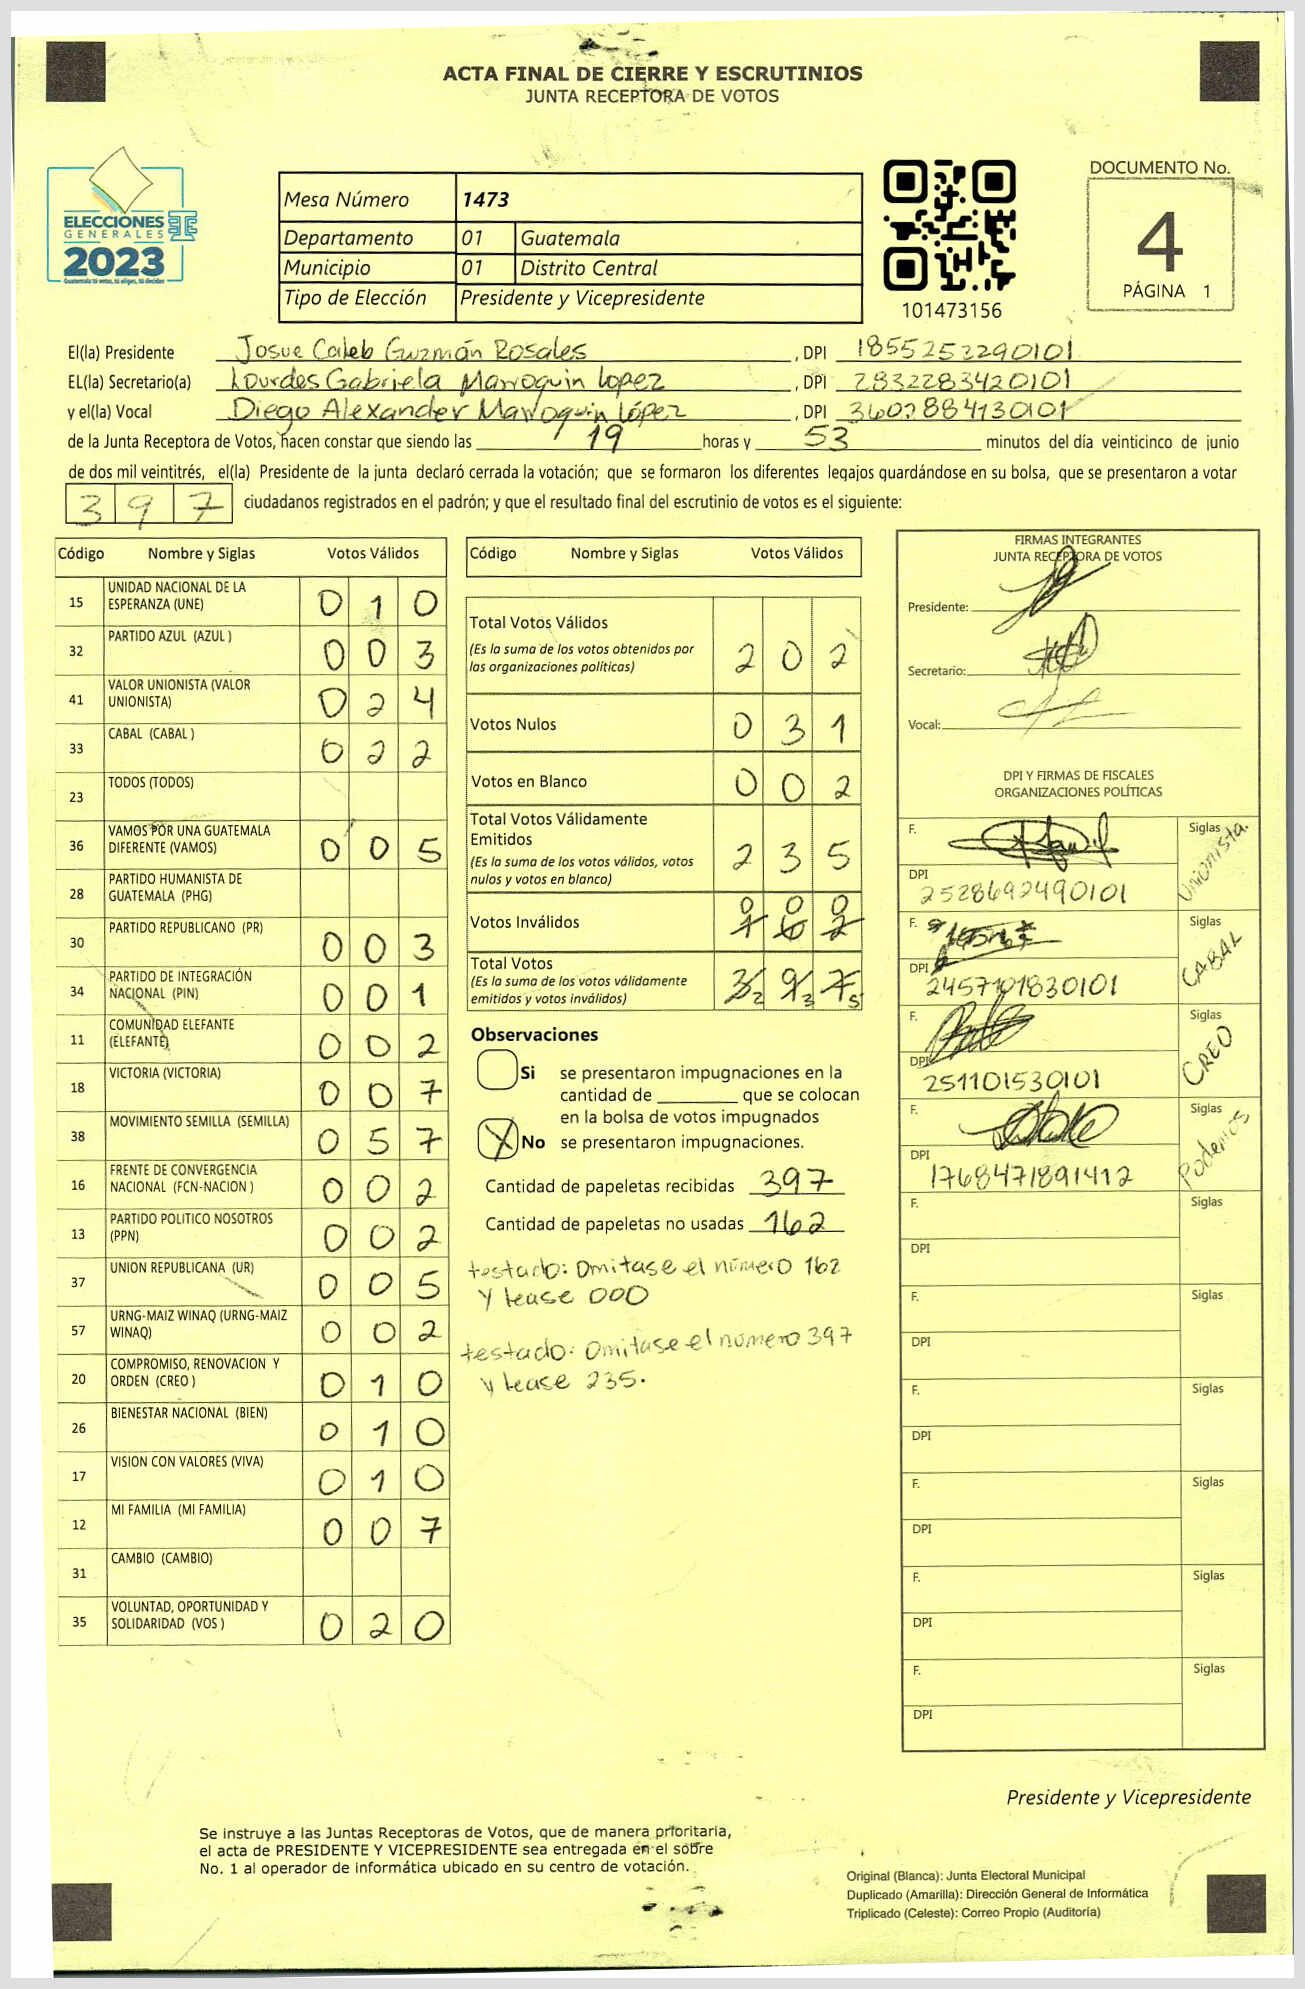 ACTA FINAL DE CIERRE Y ESCRUTINIOS
JUNTA RECEPTORA DE VOTOS
ELECCIONES
GENERALES
2023
Guatemala tú votas, tú eliges, tú decides
Mesa Número 1473
Departamento 01 Guatemala
Municipio 01 Distrito Central
Tipo de Elección Presidente y Vicepresidente
101473156
DOCUMENTO No.
4
PÁGINA 1
El(la) Presidente Josue Caleb Guzmán Rosales , DPI 1855252290101
EL(la) Secretario(a) Lourdes Gabriela Marroquin Lopez , DPI 2832283420101
y el(la) Vocal Diego Alexander Marroquin López , DPI 3602884130101
de la Junta Receptora de Votos, hacen constar que siendo las 19 horas y 53 minutos del día veinticinco de junio
de dos mil veintitrés, el(la) Presidente de la junta declaró cerrada la votación; que se formaron los diferentes legajos guardándose en su bolsa, que se presentaron a votar
397 ciudadanos registrados en el padrón; y que el resultado final del escrutinio de votos es el siguiente:
Código Nombre y Siglas Votos Válidos
15 UNIDAD NACIONAL DE LA ESPERANZA (UNE) 0 1 0
32 PARTIDO AZUL (AZUL ) 0 0 3
41 VALOR UNIONISTA (VALOR UNIONISTA) 0 2 4
33 CABAL (CABAL ) 0 2 2
23 TODOS (TODOS)
36 VAMOS POR UNA GUATEMALA DIFERENTE (VAMOS) 0 0 5
28 PARTIDO HUMANISTA DE GUATEMALA (PHG)
30 PARTIDO REPUBLICANO (PR) 0 0 3
34 PARTIDO DE INTEGRACIÓN NACIONAL (PIN) 0 0 1
11 COMUNIDAD ELEFANTE (ELEFANTE) 0 0 2
18 VICTORIA (VICTORIA) 0 0 7
38 MOVIMIENTO SEMILLA (SEMILLA) 0 5 7
16 FRENTE DE CONVERGENCIA NACIONAL (FCN-NACION ) 0 0 2
13 PARTIDO POLITICO NOSOTROS (PPN) 0 0 2
37 UNION REPUBLICANA (UR) 0 0 5
57 URNG-MAIZ WINAQ (URNG-MAIZ WINAQ) 0 0 2
20 COMPROMISO, RENOVACION Y ORDEN (CREO ) 0 1 0
26 BIENESTAR NACIONAL (BIEN) 0 1 0
17 VISION CON VALORES (VIVA) 0 1 0
12 MI FAMILIA (MI FAMILIA) 0 0 7
31 CAMBIO (CAMBIO)
35 VOLUNTAD, OPORTUNIDAD Y SOLIDARIDAD (VOS ) 0 2 0
Código Nombre y Siglas Votos Válidos
Total Votos Válidos 2 0 2
(Es la suma de los votos obtenidos por
las organizaciones políticas)
Votos Nulos 0 3 1
Votos en Blanco 0 0 2
Total Votos Válidamente
Emitidos 2 3 5
(Es la suma de los votos válidos, votos
nulos y votos en blanco)
0 0 0
Votos Inválidos 1 6 2
Total Votos 3 9 7
(Es la suma de los votos válidamente
emitidos y votos inválidos) 2 3 5
Observaciones
Si se presentaron impugnaciones en la
cantidad de ________ que se colocan
en la bolsa de votos impugnados
X No se presentaron impugnaciones.
Cantidad de papeletas recibidas 397
Cantidad de papeletas no usadas 162
testado: Omitase el número 162
y lease 000
testado: Omitase el número 397
y lease 235.
FIRMAS INTEGRANTES
JUNTA RECEPTORA DE VOTOS
Presidente:
Secretario:
Vocal:
DPI Y FIRMAS DE FISCALES
ORGANIZACIONES POLÍTICAS
F. Siglas Unionista.
DPI 2528692490101
F. Siglas CABAL
DPI 2457101830101
F. Siglas CREO
DPI 251101530101
F. Siglas Podemos
DPI 1768471891412
F. Siglas
DPI
F. Siglas
DPI
F. Siglas
DPI
F. Siglas
DPI
F. Siglas
DPI
F. Siglas
DPI
Presidente y Vicepresidente
Se instruye a las Juntas Receptoras de Votos, que de manera prioritaria,
el acta de PRESIDENTE Y VICEPRESIDENTE sea entregada en el sobre
No. 1 al operador de informática ubicado en su centro de votación.
Original (Blanca): Junta Electoral Municipal
Duplicado (Amarilla): Dirección General de Informática
Triplicado (Celeste): Correo Propio (Auditoría)